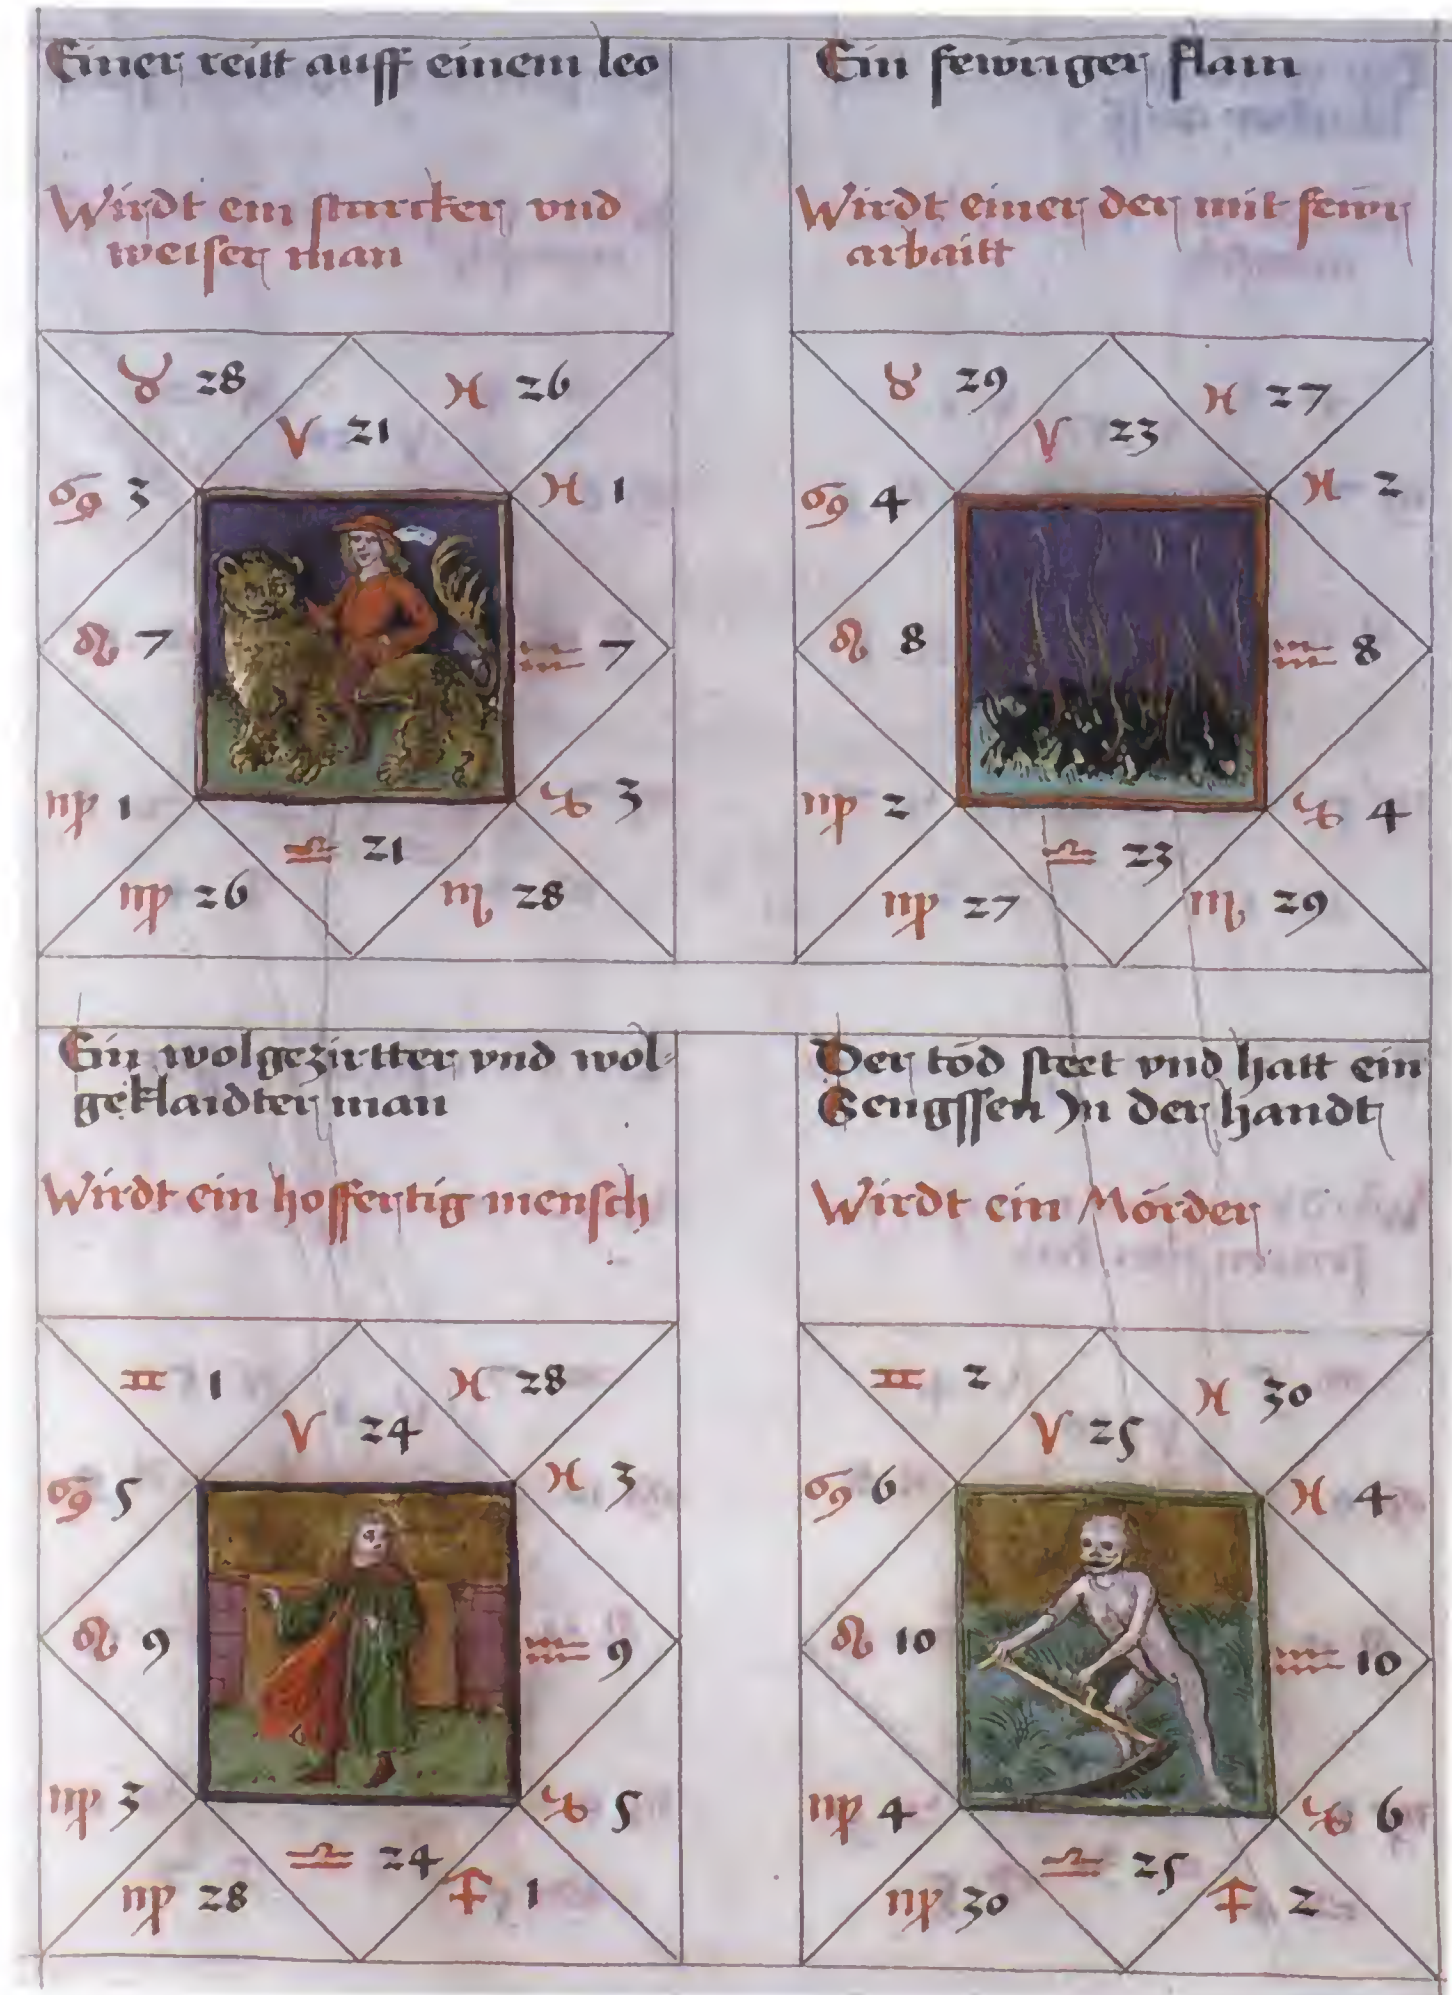 Einer reitt auff einem leo
Wirdt ein starcker vnd
weiser man
♉ 28
♓ 26
♈ 21
♋ 3
♓ 1
♌ 7
♒ 7
♍ 1
♑ 3
♎ 21
♍ 26
♏ 28
Ein fewriger flam
Wirdt einer der mit fewr
arbaitt
♉ 29
♓ 27
♈ 23
♋ 4
♓ 2
♌ 8
♒ 8
♍ 2
♑ 4
♎ 23
♍ 27
♏ 29
Ein wolgezirtter vnd wol-
geklaidter man
Wirdt ein hoffertig mensch
♊ 1
♓ 28
♈ 24
♋ 5
♓ 3
♌ 9
♒ 9
♍ 3
♑ 5
♎ 24
♍ 28
♐ 1
Der tod steet vnd hatt ein
Sengssen In der handt
Wirdt ein Mörder
♊ 2
♓ 30
♈ 25
♋ 6
♓ 4
♌ 10
♒ 10
♍ 4
♑ 6
♎ 25
♍ 30
♐ 2